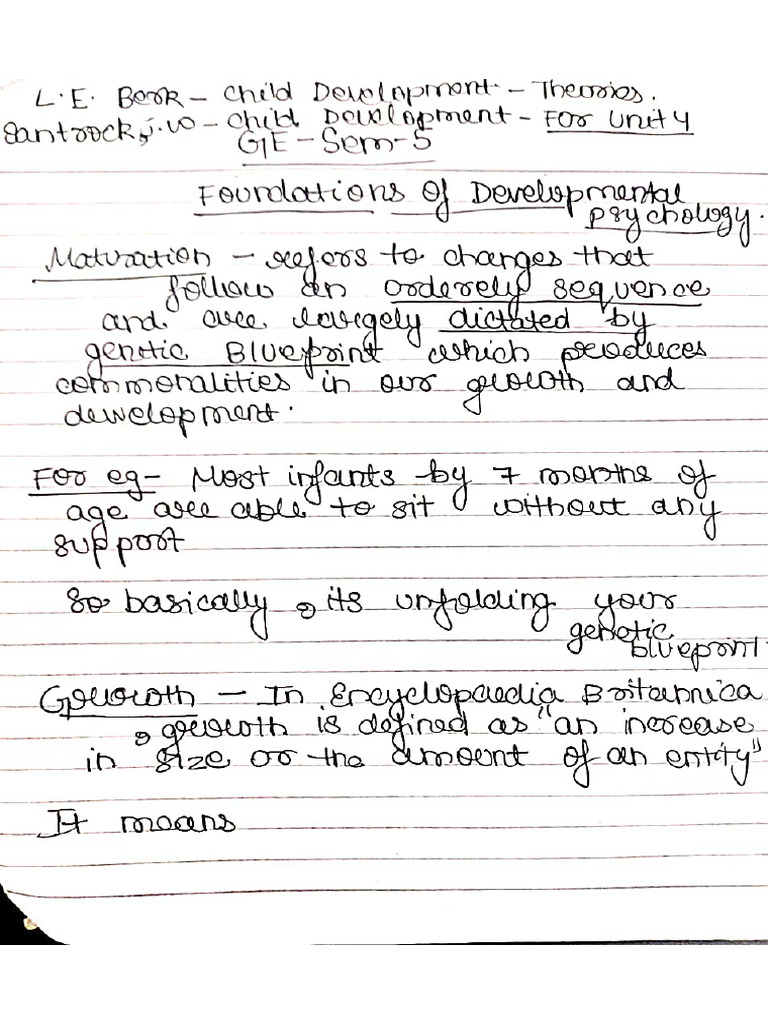 L.E. Berk - Child Development - Theories.
Santrock, J.W - Child Development - For Unit 4
GE - Sem - 5
Foundations of Developmental
Psychology.
Maturation - refers to changes that
follow an orderely sequence
and are largely dictated by
genetic Blueprint which produces
commonalities in our growth and
development.
For eg - Most infants by 7 months of
age are able to sit without any
support
So basically, its unfolding your
genetic
blueprint
Growth - In Encyclopaedia Britannica
, growth is defined as "an increase
in size or the amount of an entity"
It means